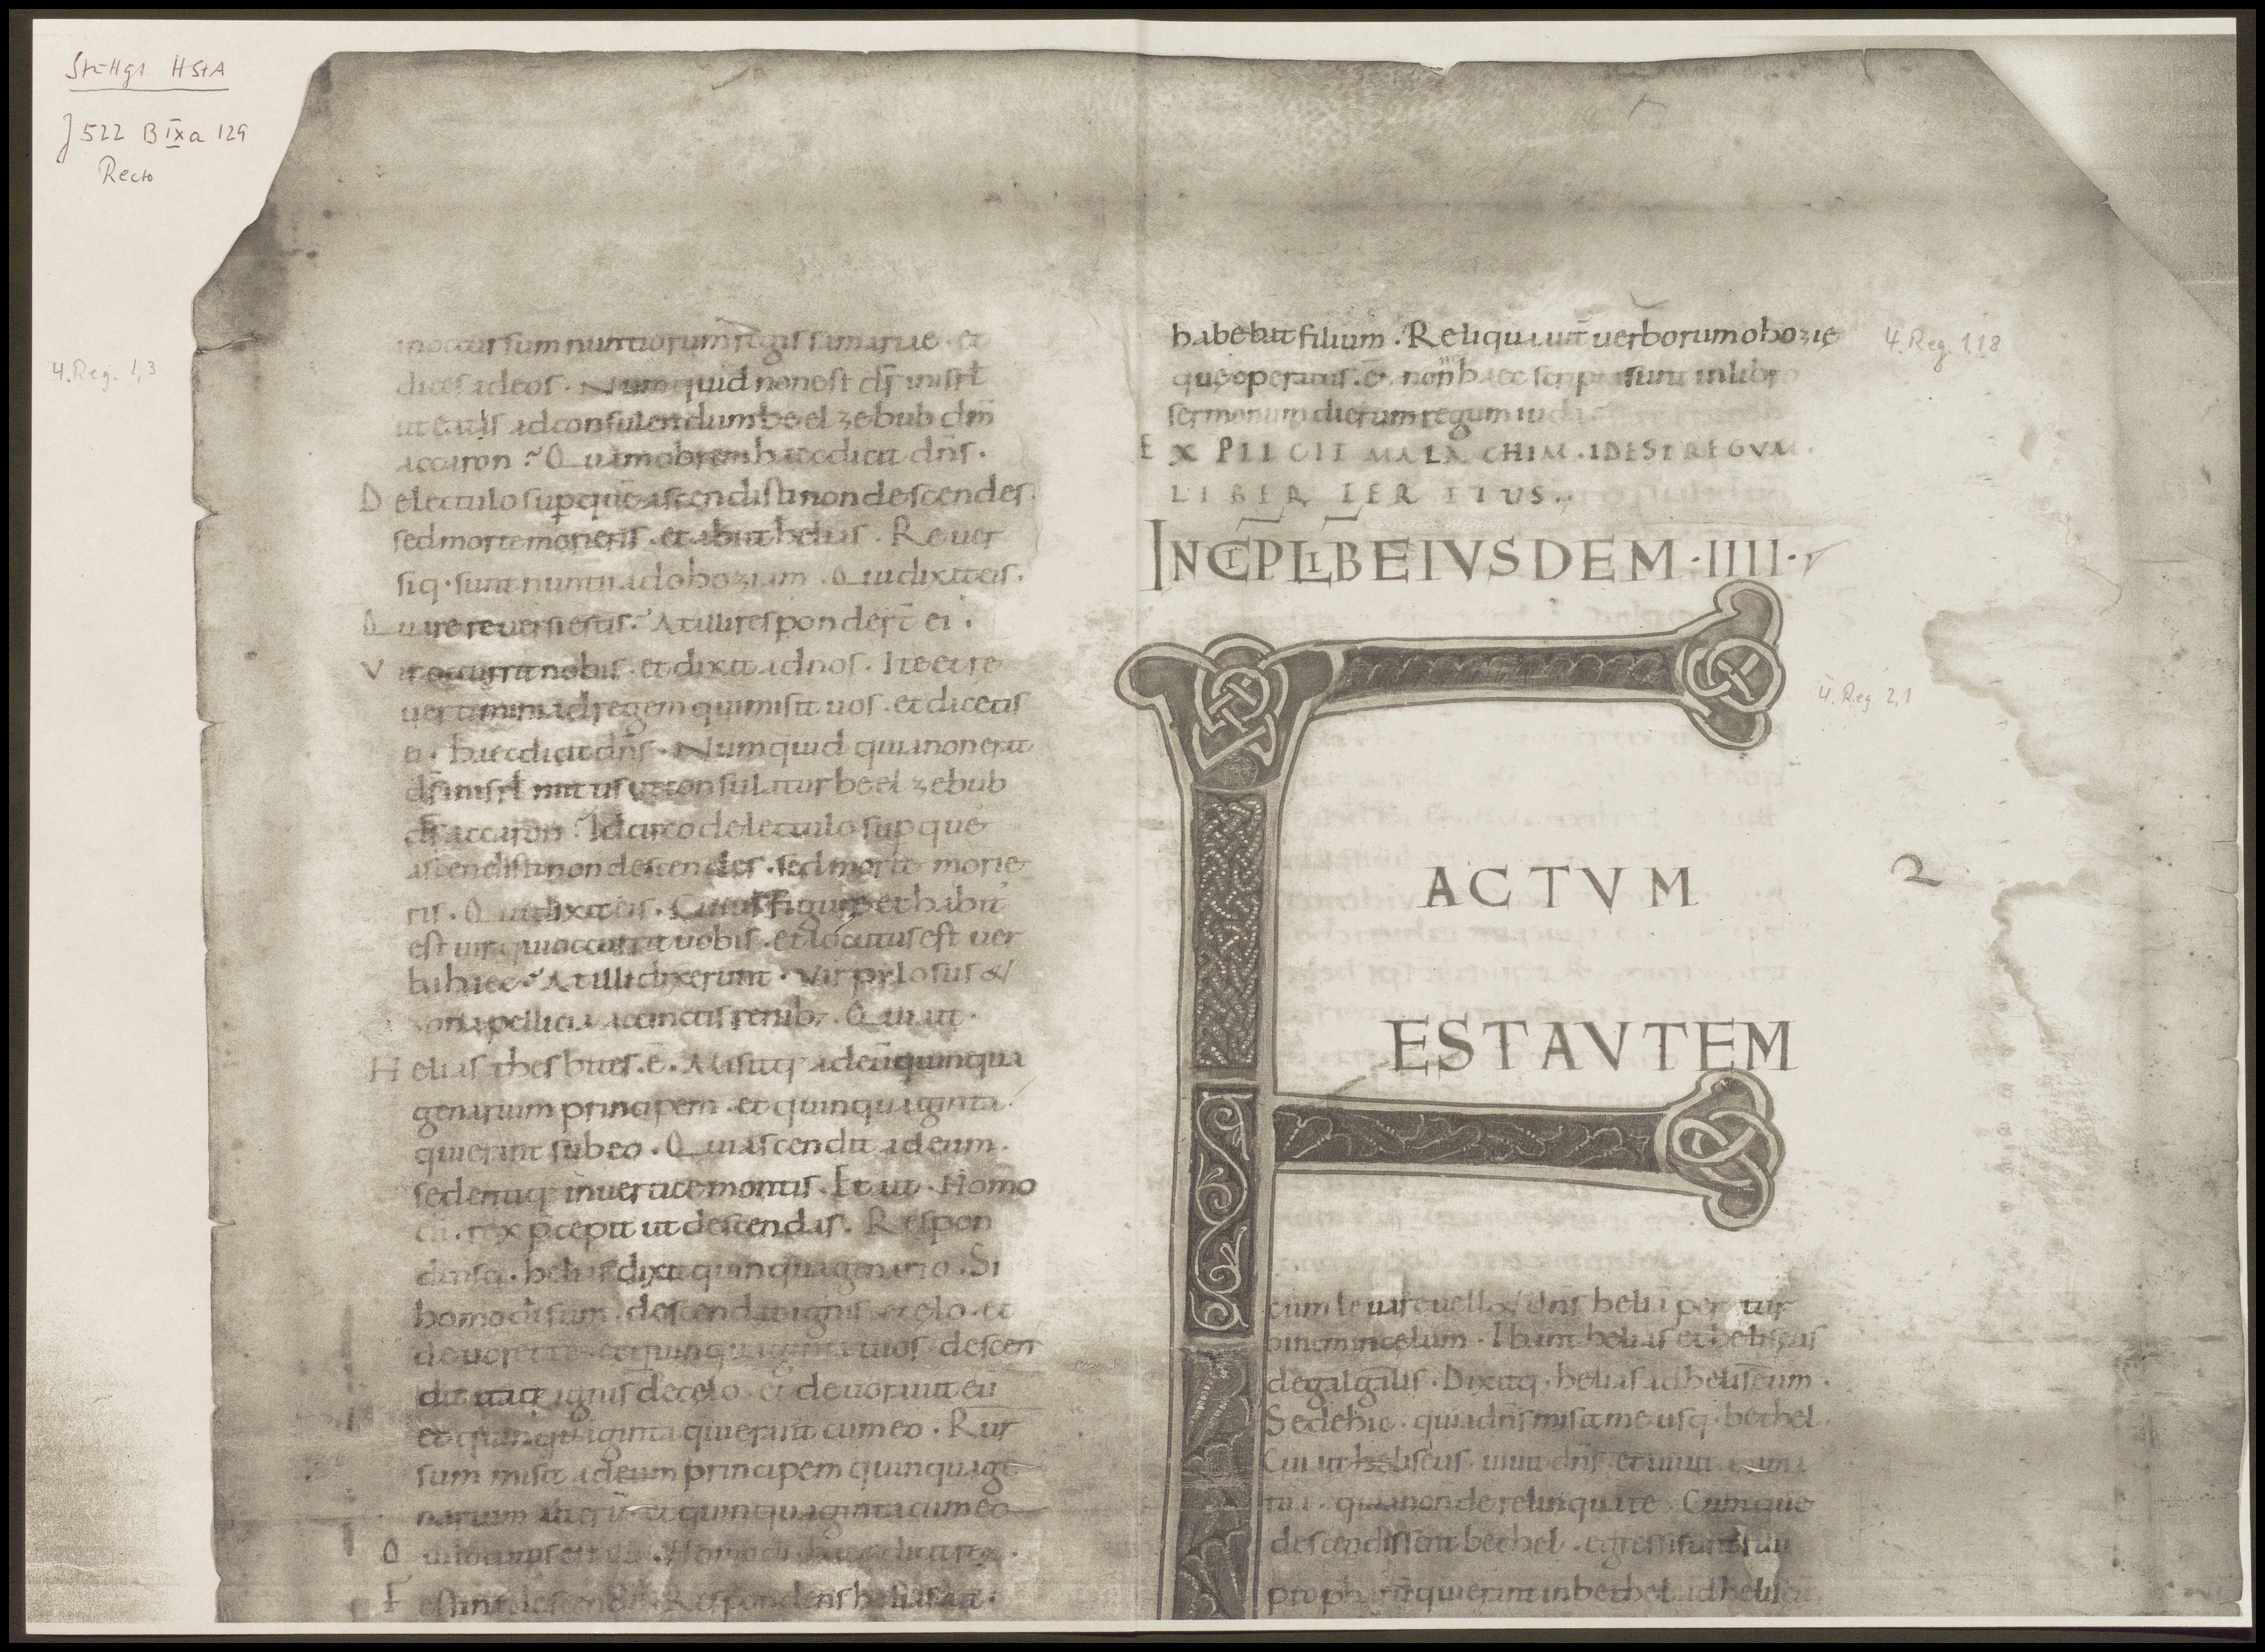 Stuttgt HStA
J 522 B IXa 129
Recto
4. Reg. 1,3
in occursum nuntiorum regis samariae · et
dices ad eos · Numquid non est d̄s̄ in isrl̄
ut eatis ad consulendum beelzebub dm̄
accaron? Quam obrem haec dicit dn̄s ·
De lectulo sup quē ascendisti non descendes ·
sed morte morieris · et abiit helias · Rever
siq · sunt nuntii ad ohoziam · Qui dixit eis ·
Quare reversi estis? At illi responder̄t ei ·
Vir occurrit nobis · et dixit ad nos · Ite et re
vertimini ad regem qui misit vos · et dicetis
ei · haec dicit dn̄s · Numquid quia non erat
d̄s̄ in isrl̄ mittis ut consulatur beelzebub
d̄s̄ accaron? Idcirco de lectulo sup que
ascendisti non descendes · sed morte morie
ris · Qui dixit eis · Cuius figurę et habit'
est vir qui occurrit vobis · et locutus est ver
ba haec? At illi dixerunt · Vir pilosus &
zona pellicia accinctis renib; · Qui ait ·
Helias thesbites · ē · Misitq · ad eū quinqua
genarium principem · et quinquaginta
qui erant sub eo · Qui ascendit ad eum ·
sedentiq · in vertice montis · Et ait · Homo
di · rex p̄cepit ut descendas · Respon
densq · helias dixit quinquagenario · Si
homo di sum · descendat ignis e celo · et
devoret te · et quinquaginta tuos · descen
dit itaq · ignis de celo · et devoravit eū
et quinquaginta qui erant cum eo · Rur
sum misit ad eum principem quinquage
narium alterū · et quinquaginta cum eo
Qui locutus est · Homo di haec dicit rex ·
Festina descende · Respondens helias ait ·
habebat filium · Reliqua aut̄ verborum ohozię
4. Reg. 1,18
que operatus · ē · nonn̄ haec scripta sunt in libro
sermonum dierum regum iuda
EXPLICIT MALACHIM · IDEST REGVM ·
LIBER TERTIUS ·
INCIP LIB EIVSDEM · IIII ·
4. Reg. 2,1
F
ACTVM
2
EST AVTEM
cum levare vellet dn̄s heliā per tur
binem in celum · Ibant helias et heliseus
de galgalis · Dixitq · helias ad heliseum ·
Sede hic · quia dn̄s misit me usq · bethel
Cui ait heliseus · vivit dn̄s et vivit anima
tua · quia non derelinquā te · Cumque
descendissent bethel · egressi sunt filii
prophetarū qui erant in bethel ad heliseū